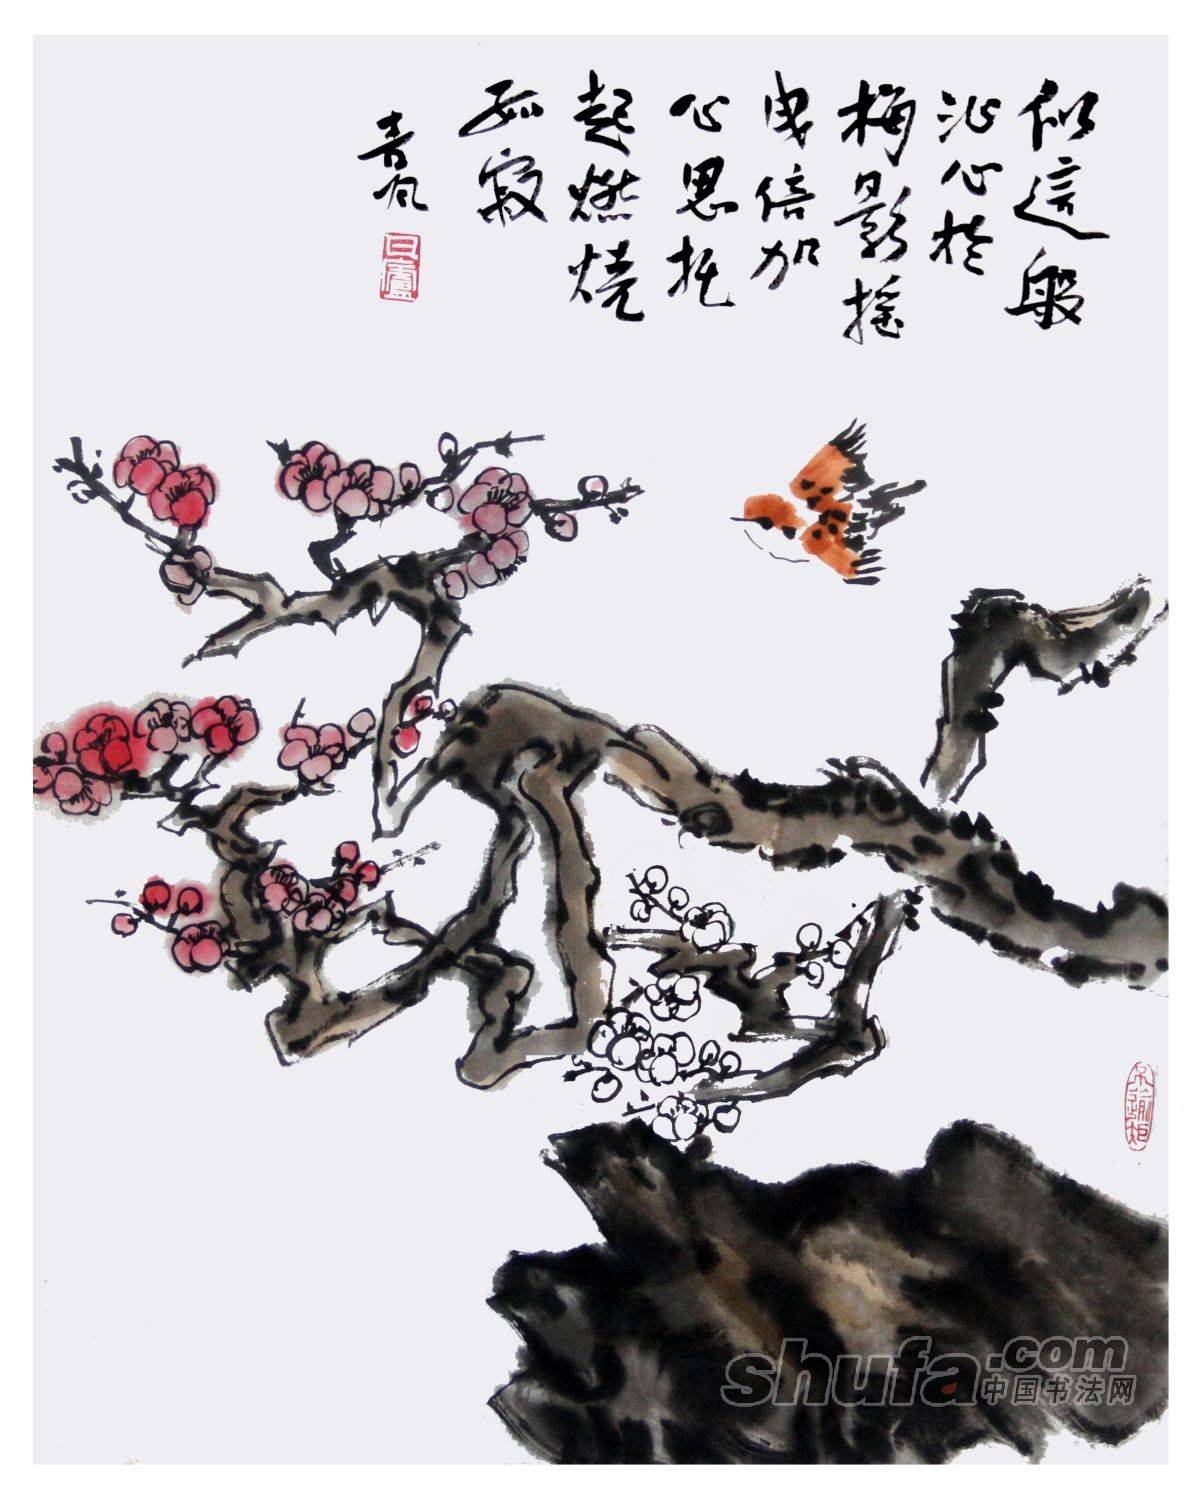 似這般
沁心於
梅影搖
曳倍加
心思托
起燃燒
孤寂
青风
不逾矩
shufa.com
中国书法网